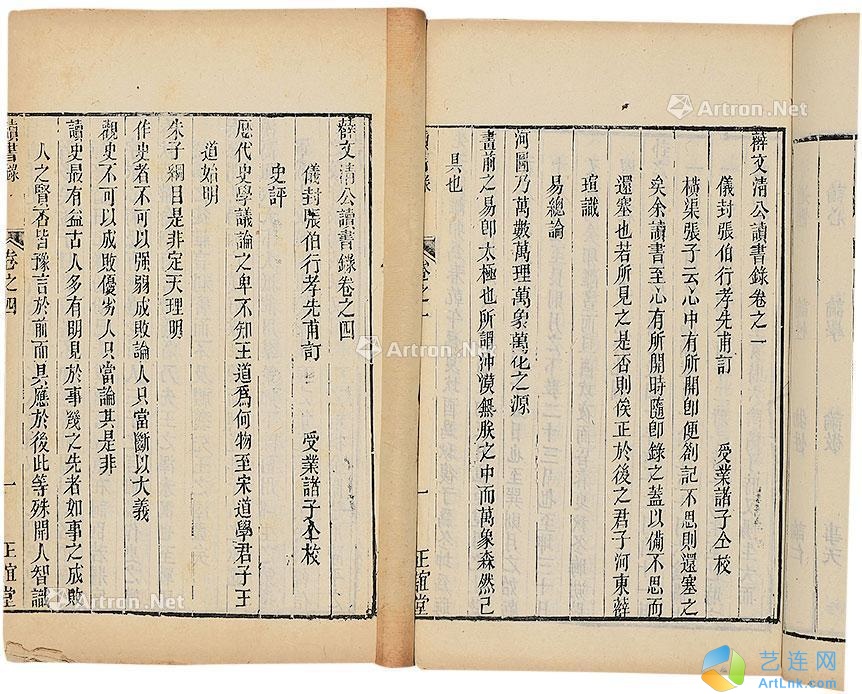 薛文清公讀書錄卷之一
儀封張伯行孝先甫訂 受業諸子仝校
橫渠張子云心中有所開即便劄記不思則還塞之
矣余讀書至心有所開時隨即錄之蓋以備不思而
還塞也若所見之是否則俟正於後之君子河東薛
瑄識
易總論
河圖乃萬數萬理萬象萬化之源
畫前之易即太極也所謂沖漠無朕之中而萬象森然已
具也
薛文清公讀書錄卷之四
儀封張伯行孝先甫訂 受業諸子仝校
史評
歷代史學議論之卑不知王道爲何物至宋道學君子王
道始明
朱子綱目是非定天理明
作史者不可以强弱成敗論人只當斷以大義
觀史不可以成敗優劣人只當論其是非
讀史最有益古人多有明見於事幾之先者如事之成敗
人之賢否皆豫言於前而具應於後此等殊開人智識
讀書錄 卷之四 一 正誼堂
Artron.Net
Artron.Net
Artron.Net
Artron.Net
Artron.Net
艺连网
ArtLnk.com